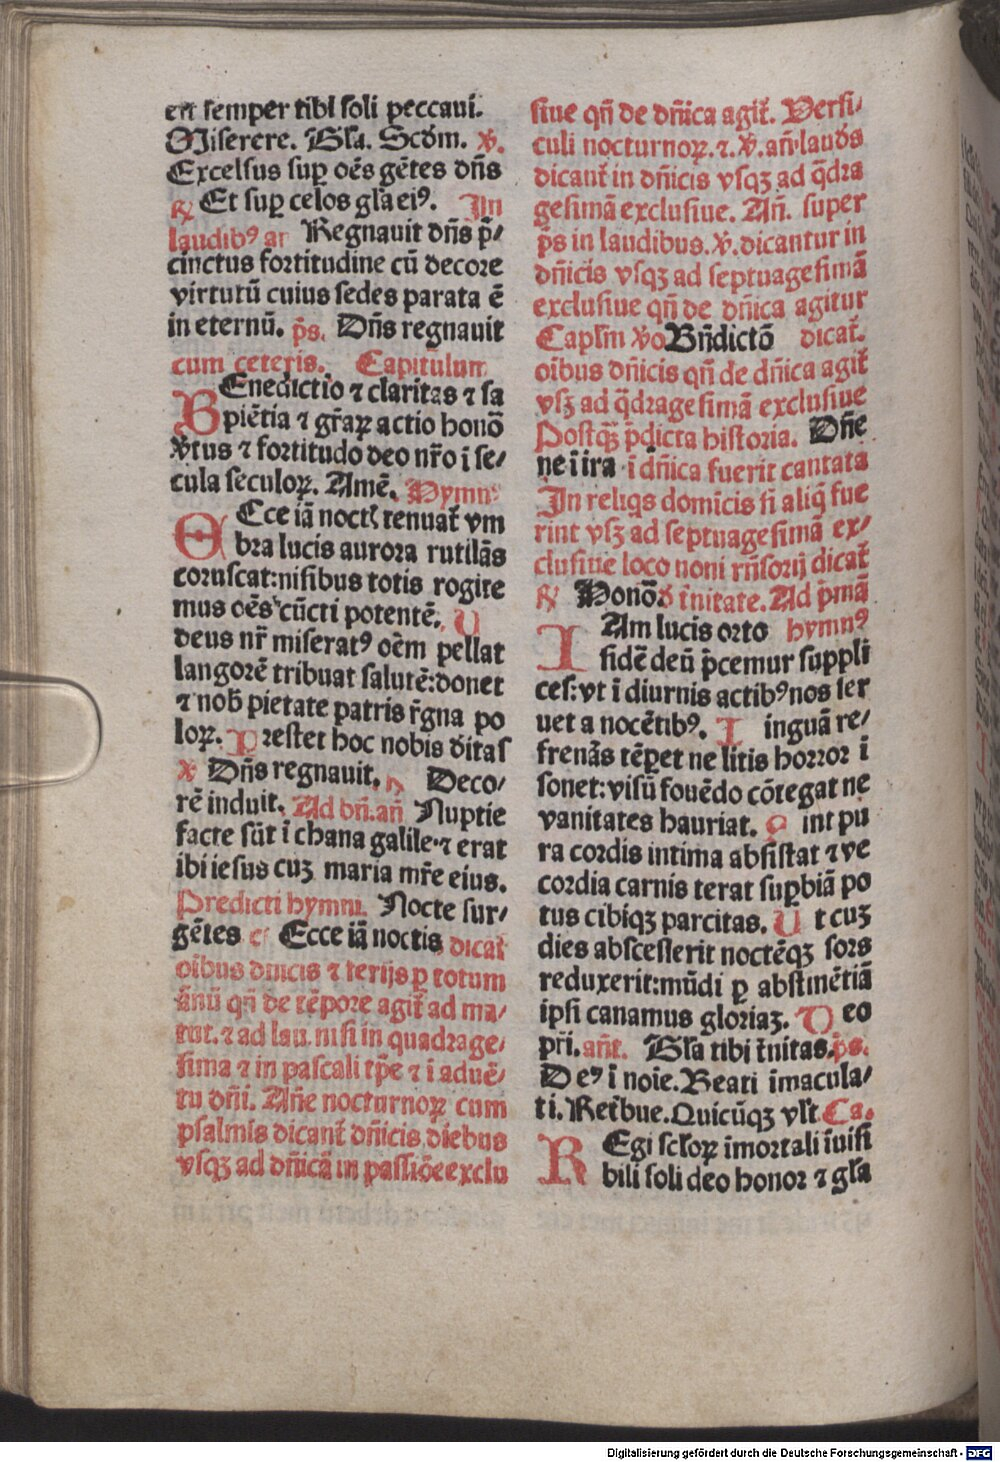 est semper tibi soli peccaui.
Miserere. Gl'a. Scd'm. v̄.
Excelsus sup̱ oēs gētes dn̄s
℟ Et sup̱ celos gl'a ei⁹. In
laudib⁹ an̄ Regnauit dn̄s p̄/
cinctus fortitudine cū decore
virtutū cuius sedes parata ē
in eternū. p̄s. Dn̄s regnauit
cum ceteris. Capitulum
BEnedictio ⁊ claritas ⁊ sa
piētia ⁊ gr̄aꝝ actio honō
v̄tus ⁊ fortitudo deo nr̄o ī se/
cula seculoꝝ. Amē. Hymn⁹
ECce iā noctꝭ tenuat̄ vm
bra lucis aurora rutilās
coruscat:nisibus totis rogite
mus oēs cūcti potentē. U
deus nr̄ miserat⁹ oēm pellat
langorē tribuat salutē:donet
⁊ nob̄ pietate patris r̄gna po
loꝝ. Prestet hoc nobis ditas
v̄ Dn̄s regnauit. ℟ Deco/
rē induit. Ad bn̄.an̄ Nuptie
facte sūt ī chana galile·⁊ erat
ibi iesus cuꝫ maria mr̄e eius.
Predicti hymni. Nocte sur/
gētes et Ecce iā noctis dicāt
oībus dn̄icis ⁊ ferijs ꝑ totum
ānū qn̄ de tēpore agit̄ ad ma/
tut. ⁊ ad lau. nisi in quadrage/
sima ⁊ in pascali tp̄e ⁊ ī aduē/
tu dn̄i. Añe nocturnoꝝ cum
psalmis dicant̄ dn̄icis diebus
vsqꝫ ad dn̄icā in passiōe exclu
siue qn̄ de dn̄ica agit̄. Versi/
culi nocturnoꝝ.⁊.v̄.an̄.laudꝭ
dicant̄ in dn̄icis vsqꝫ ad q̄dra
gesimā exclusiue. An̄. super
p̄s in laudibus.v̄.dicantur in
dn̄icis vsqꝫ ad septuagesimā
exclusiue qn̄ de dn̄ica agitur
Caplm v̄o Bn̄dictō dicat̄.
oībus dn̄icis qn̄ de dn̄ica agit̄
vsqꝫ ad q̄dragesimā exclusiue
Postqꝫ p̄dicta historia. Dn̄e
ne ī ira ī dn̄ica fuerit cantata
In reliqs domīcis si aliq̄ fue
rint vsqꝫ ad septuagesimā ex/
clusiue loco noni rn̄sorij dicat̄
℟ Honō d̄ t̄nitate. Ad p̄mā
IAm lucis orto hymn⁹
sidē deū p̄cemur suppli
ces:vt ī diurnis actib⁹ nos ser
uet a nocētib⁹. L inguā re/
frenās tēp̱et ne litis horror ī
sonet:visū fouēdo cōtegat ne
vanitates hauriat. S int pu
ra cordis intima absistat ⁊ ve
cordia carnis terat sup̱biā po
tus cibiqꝫ parcitas. U t cuꝫ
dies abscesserit noctēqꝫ sors
reduxerit:mūdi ꝑ abstinētiā
ipsi canamus gloriaꝫ. D eo
pr̄i. an̄t. Gl'a tibi t̄nitas.p̄s.
De⁹ ī noīe. Beati īmacula/
ti. Ret̄bue. Quicūqꝫ vlt̄ Ca.
REgi sc̄loꝝ īmortali īuisi
bili soli deo honor ⁊ gl'a
Digitalisierung gefördert durch die Deutsche Forschungsgemeinschaft - DFG